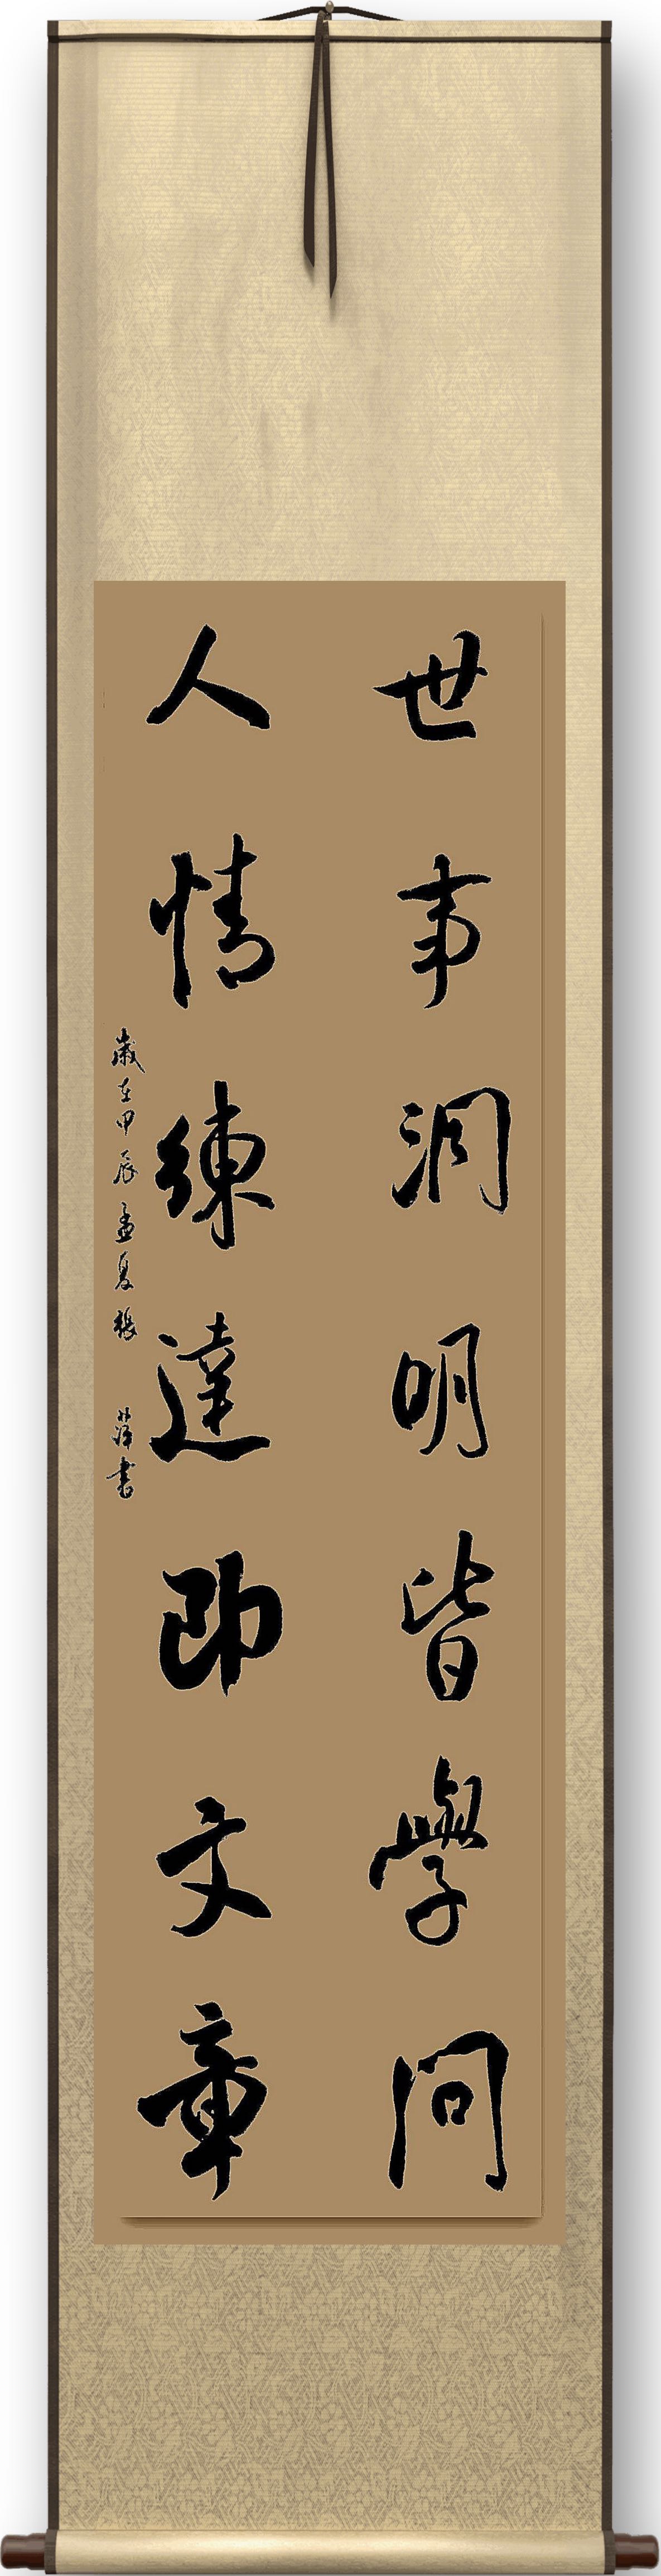 世事洞明皆學問
人情練達即文章
歲在甲辰孟夏張萍書